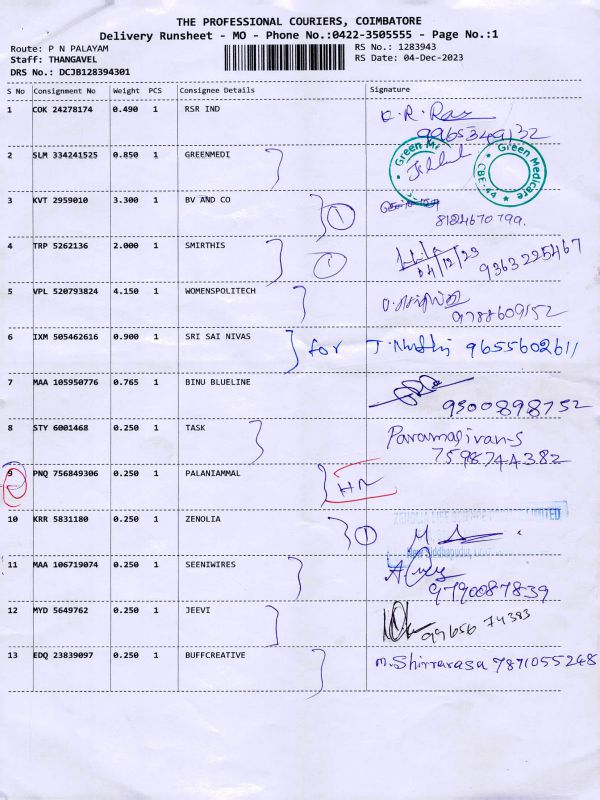 THE PROFESSIONAL COURIERS, COIMBATORE
Delivery Runsheet - MO - Phone No.:0422-3505555 - Page No.:1
Route: P N PALAYAM RS No.: 1283943
Staff: THANGAVEL RS Date: 04-Dec-2023
DRS No.: DCJB128394301
S No Consignment No Weight PCS Consignee Details Signature
1 COK 24278174 0.490 1 RSR IND
9965349132
2 SLM 334241525 0.850 1 GREENMEDI Green Medicare CBE-44
3 KVT 2959010 3.300 1 BV AND CO 1
8124670799.
4 TRP 5262136 2.000 1 SMIRTHIS 1 04/12/23 9363225467
5 VPL 520793824 4.150 1 WOMENSPOLITECH
9788609152
6 IXM 505462616 0.900 1 SRI SAI NIVAS for 9655602611
7 MAA 105950776 0.765 1 BINU BLUELINE
9300898752
8 STY 6001468 0.250 1 TASK Paramasivan-S
7598744382
9 PNQ 756849306 0.250 1 PALANIAMMAL
10 KRR 5831180 0.250 1 ZENOLIA 1
11 MAA 106719074 0.250 1 SEENIWIRES
9790087839
12 MYD 5649762 0.250 1 JEEVI 99656 74383
13 EDQ 23839097 0.250 1 BUFFCREATIVE 7871055248